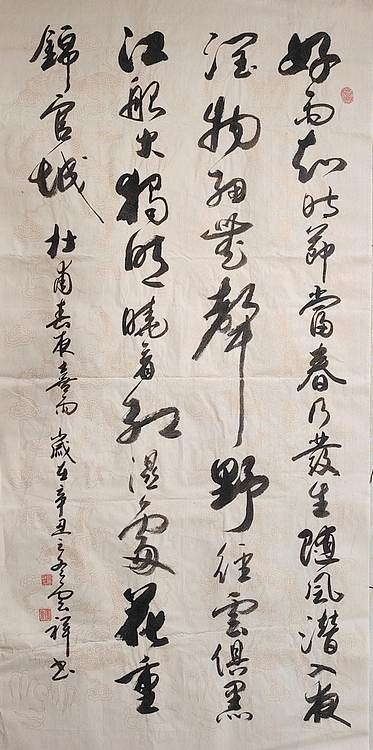 好雨知時節當春乃發生随風潛入夜
潤物細無聲野徑雲俱黑
江船火獨明曉看紅濕處花重
錦官城 杜甫春夜喜雨 歲在辛丑之冬雲祥书